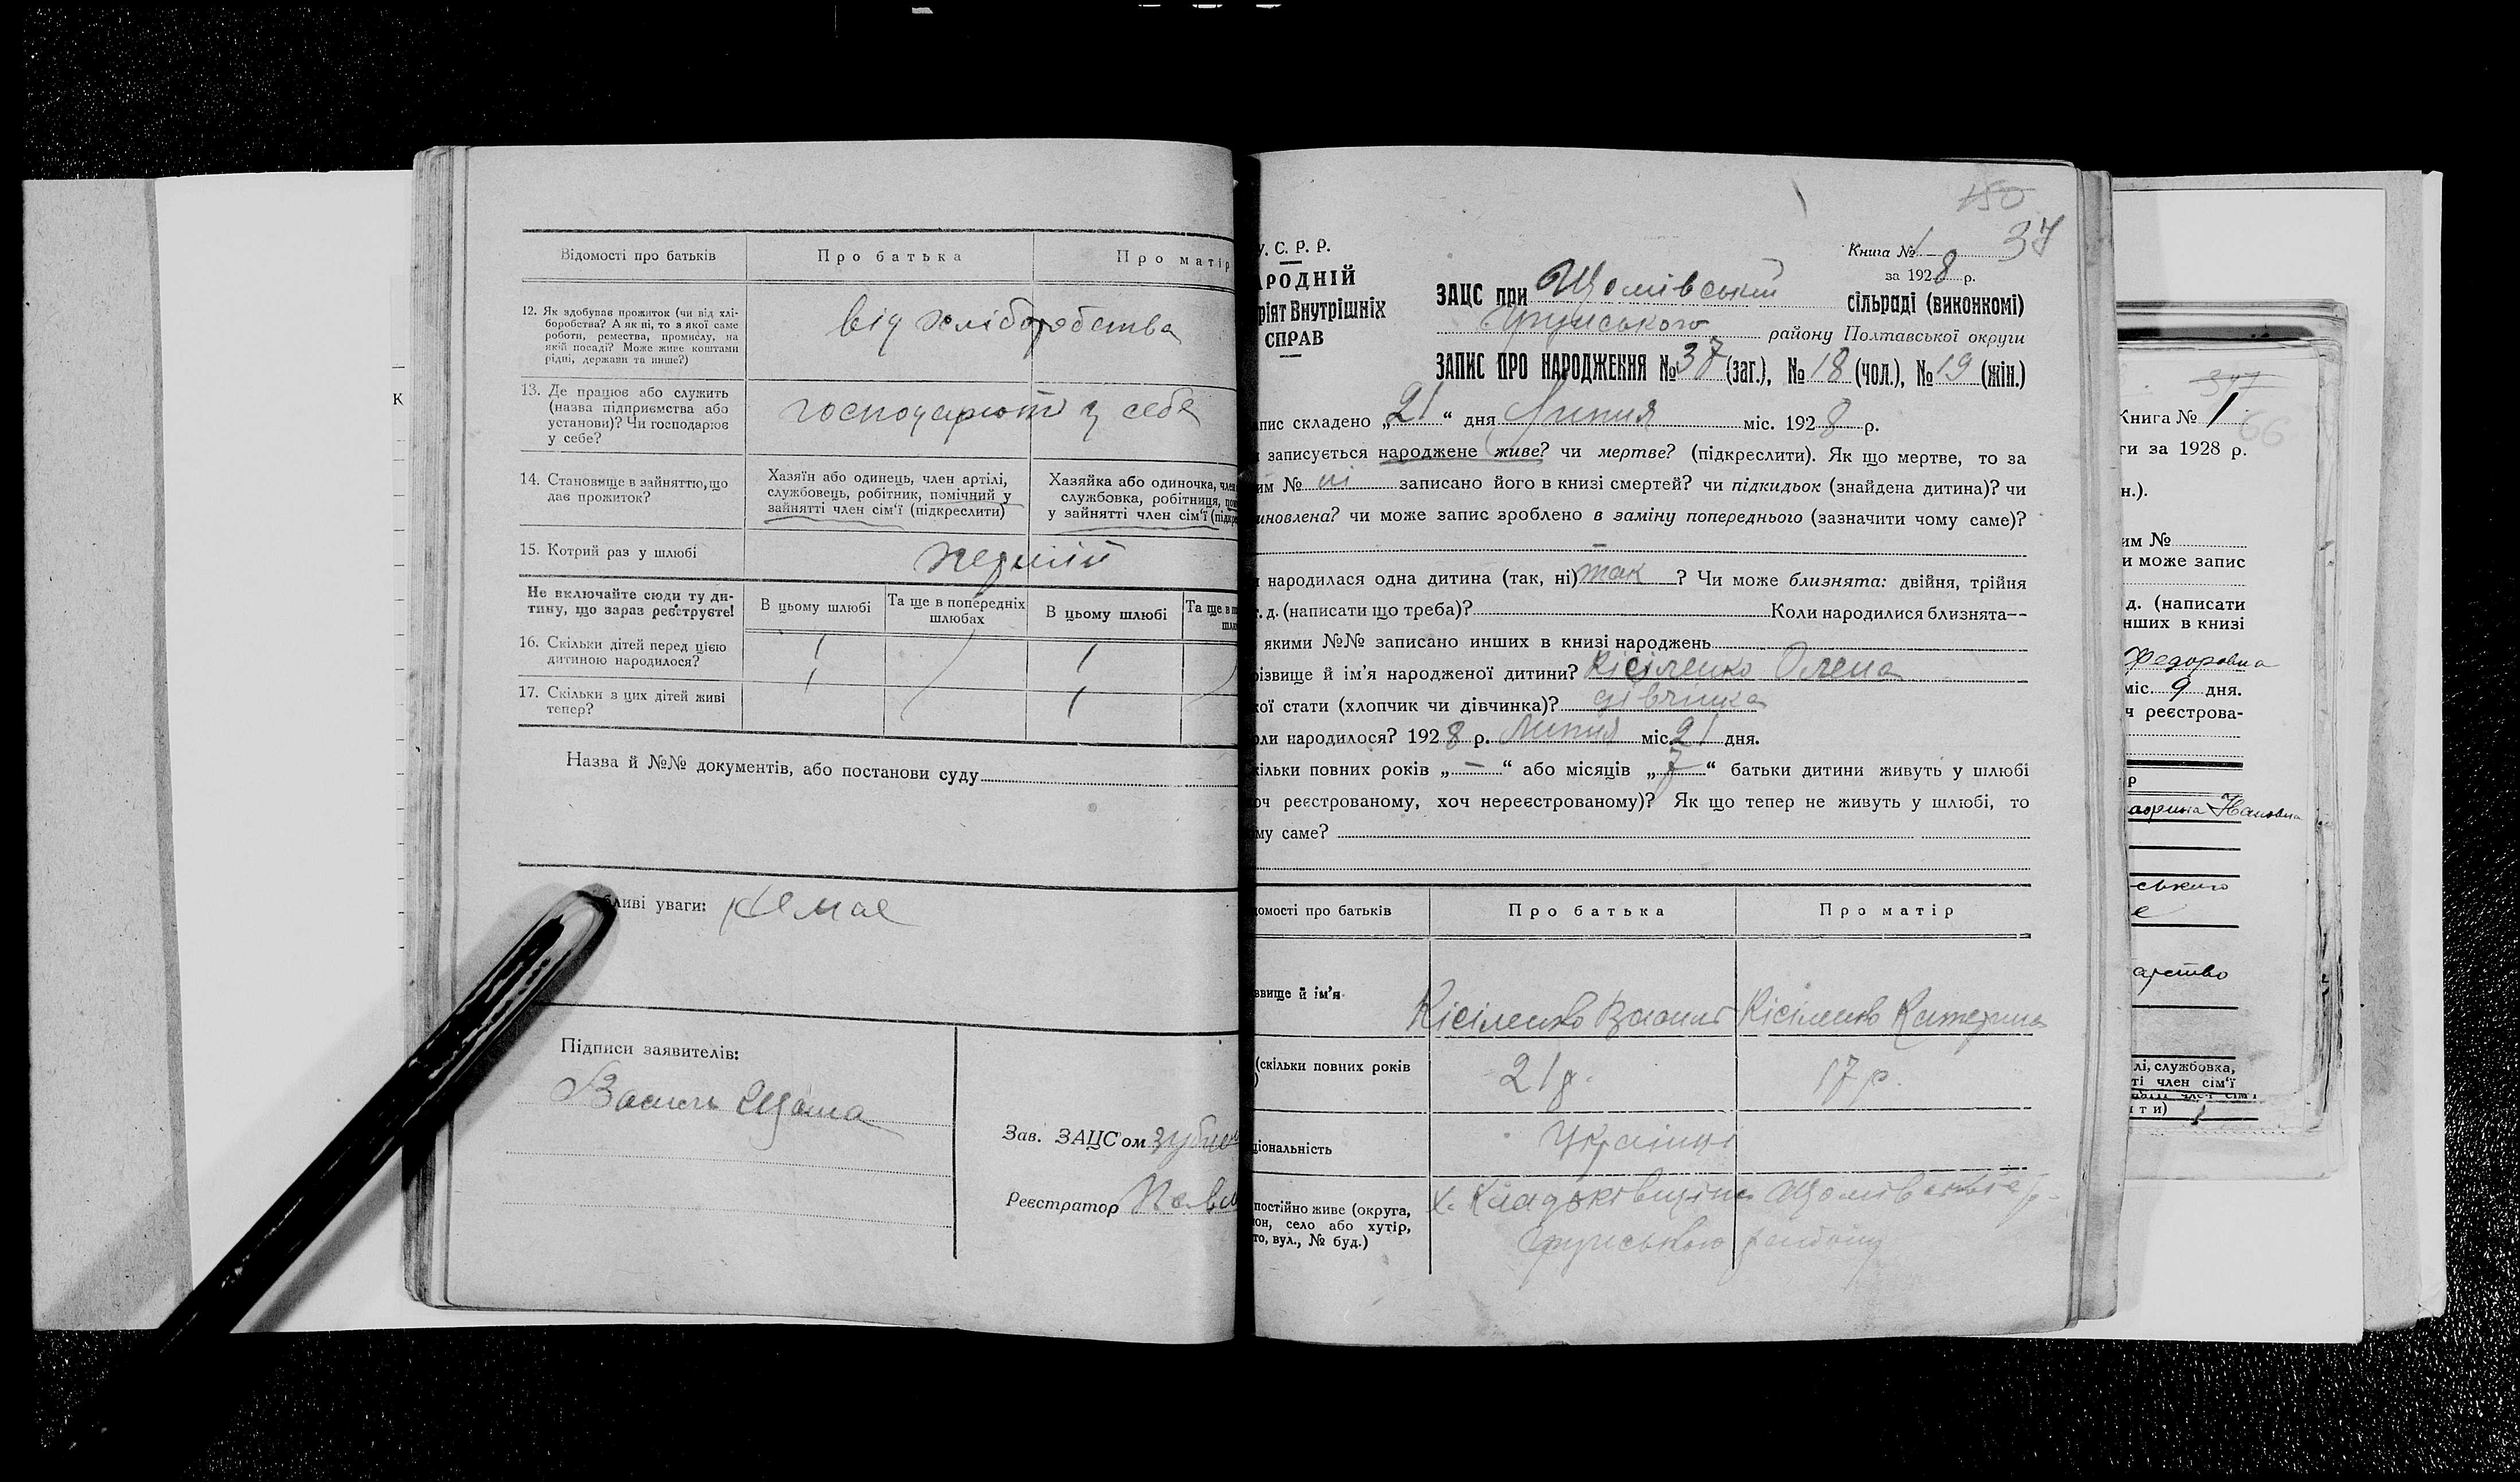 Відомості про батьків
Про батька
Про матір
12. Як здобуває прожиток (чи від хлі-
боробства? А як ні, то з якої саме
роботи, ремества, промислу, на
якій посаді? Може живе коштами
рідні, держави та инше?)
від хліборобства
13. Де працює або служить
(назва підприємства або
установи)? Чи господарює
у себе?
господарюють у себе
14. Становище в зайняттю, що
дає прожиток?
Хазяїн або одинець, член артілі,
службовець, робітник, помічний у
зайнятті член сім'ї (підкреслити)
Хазяйка або одиночка, член
службовка, робітниця,
у зайнятті член сім'ї
15. Котрий раз у шлюбі
перший
Не включайте сюди ту ди-
тину, що зараз реєструєте!
В цьому шлюбі
Та ще в попередніх
шлюбах
В цьому шлюбі
Та ще в
16. Скільки дітей перед цією
дитиною народилося?
1
1
17. Скільки з цих дітей живі
тепер?
1
1
Назва й №№ документів, або постанови суду
уваги: немає
Підписи заявителів:
Василь Щома
Зав. ЗАЦС'ом
Реєстратор
150
37
У. С. Р. Р.
Книга № 1
за 1928 р.
СПРАВ
ЗАЦС при Щомівській сільраді (виконкомі)
Грунського району Полтавської округи
ЗАПИС ПРО НАРОДЖЕННЯ № 37 (заг.), № 18 (чол.), № 19 (жін.)
складено „21“ дня Липня міс. 1928 р.
записується народжене живе? чи мертве? (підкреслити). Як що мертве, то за
№ ні записано його в книзі смертей? чи підкидьок (знайдена дитина)? чи
чи може запис зроблено в заміну попереднього (зазначити чому саме)?
народилася одна дитина (так, ні) так ? Чи може близнята: двійня, трійня
д. (написати що треба)? Коли народилися близнята—
якими №№ записано инших в книзі народжень
й ім'я народженої дитини? Кісіленко Олена
стати (хлопчик чи дівчинка)? дівчинка
народилося? 1928 р. Липня міс. 21 дня.
повних років „—“ або місяців „7“ батьки дитини живуть у шлюбі
реєстрованому, хоч нереєстрованому)? Як що тепер не живуть у шлюбі, то
саме?
про батьків
Про батька
Про матір
й ім'я
Кісіленко Василь
Кісіленко Катерина
(скільки повних років
21 р.
17 р.
Українці
постійно живе (округа,
село або хутір,
вул., № буд.)
х. Кладьківщина
Грунського району
347
Книга № 1
66
за 1928 р.
№
може запис
д. (написати
инших в книзі
Федоровна
міс. 9 дня.
реєстрова-
службовка,
член сім'ї